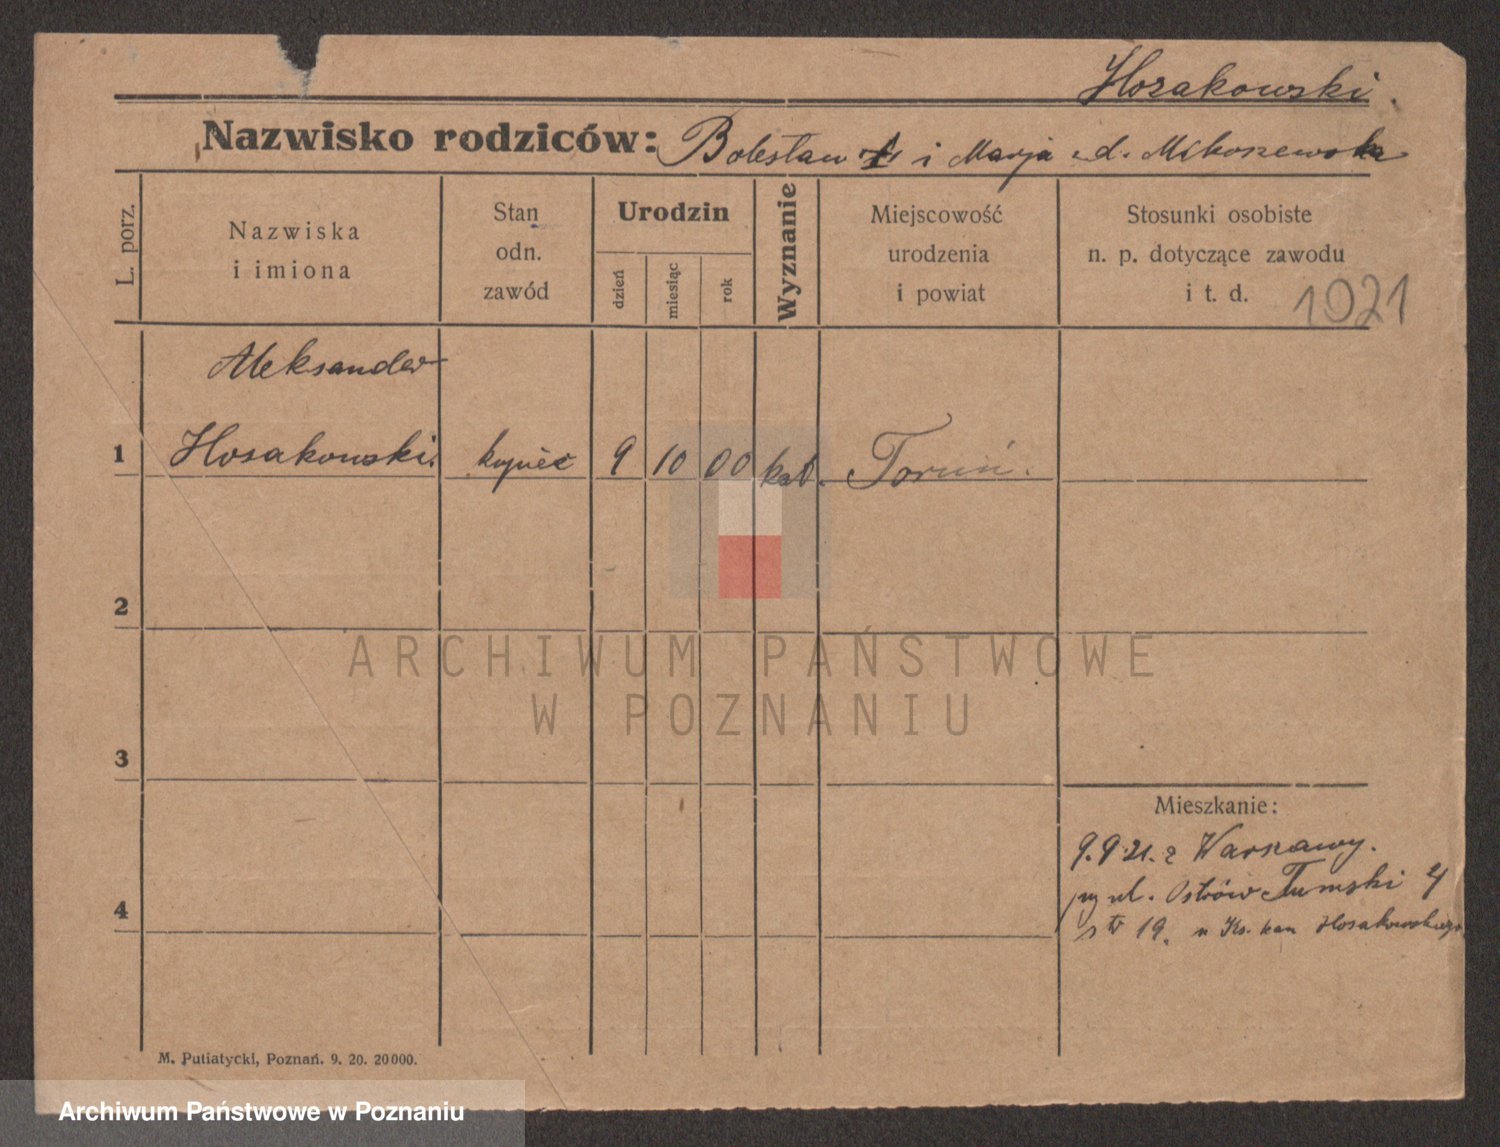 Hozakowski.
Nazwisko rodziców: Bolesław † i Marja d.
L. porz.
Nazwiska
i imiona
Stan
odn.
zawód
Urodzin
dzień
miesiąc
rok
Wyznanie
Miejscowość
urodzenia
i powiat
Stosunki osobiste
n. p. dotyczące zawodu
i t. d.
1921
Aleksander
1 Hozakowski. kupiec 9 10 00 kat. Toruń.
2
ARCHIWUM PAŃSTWOWE
W POZNANIU
3
Mieszkanie:
9.9.21. z Warszawy.
ul. Ostrów Tumski 4
4
19. u Ks. kan Hozakowskiego
M. Putiatycki, Poznań. 9. 20. 20000.
Archiwum Państwowe w Poznaniu